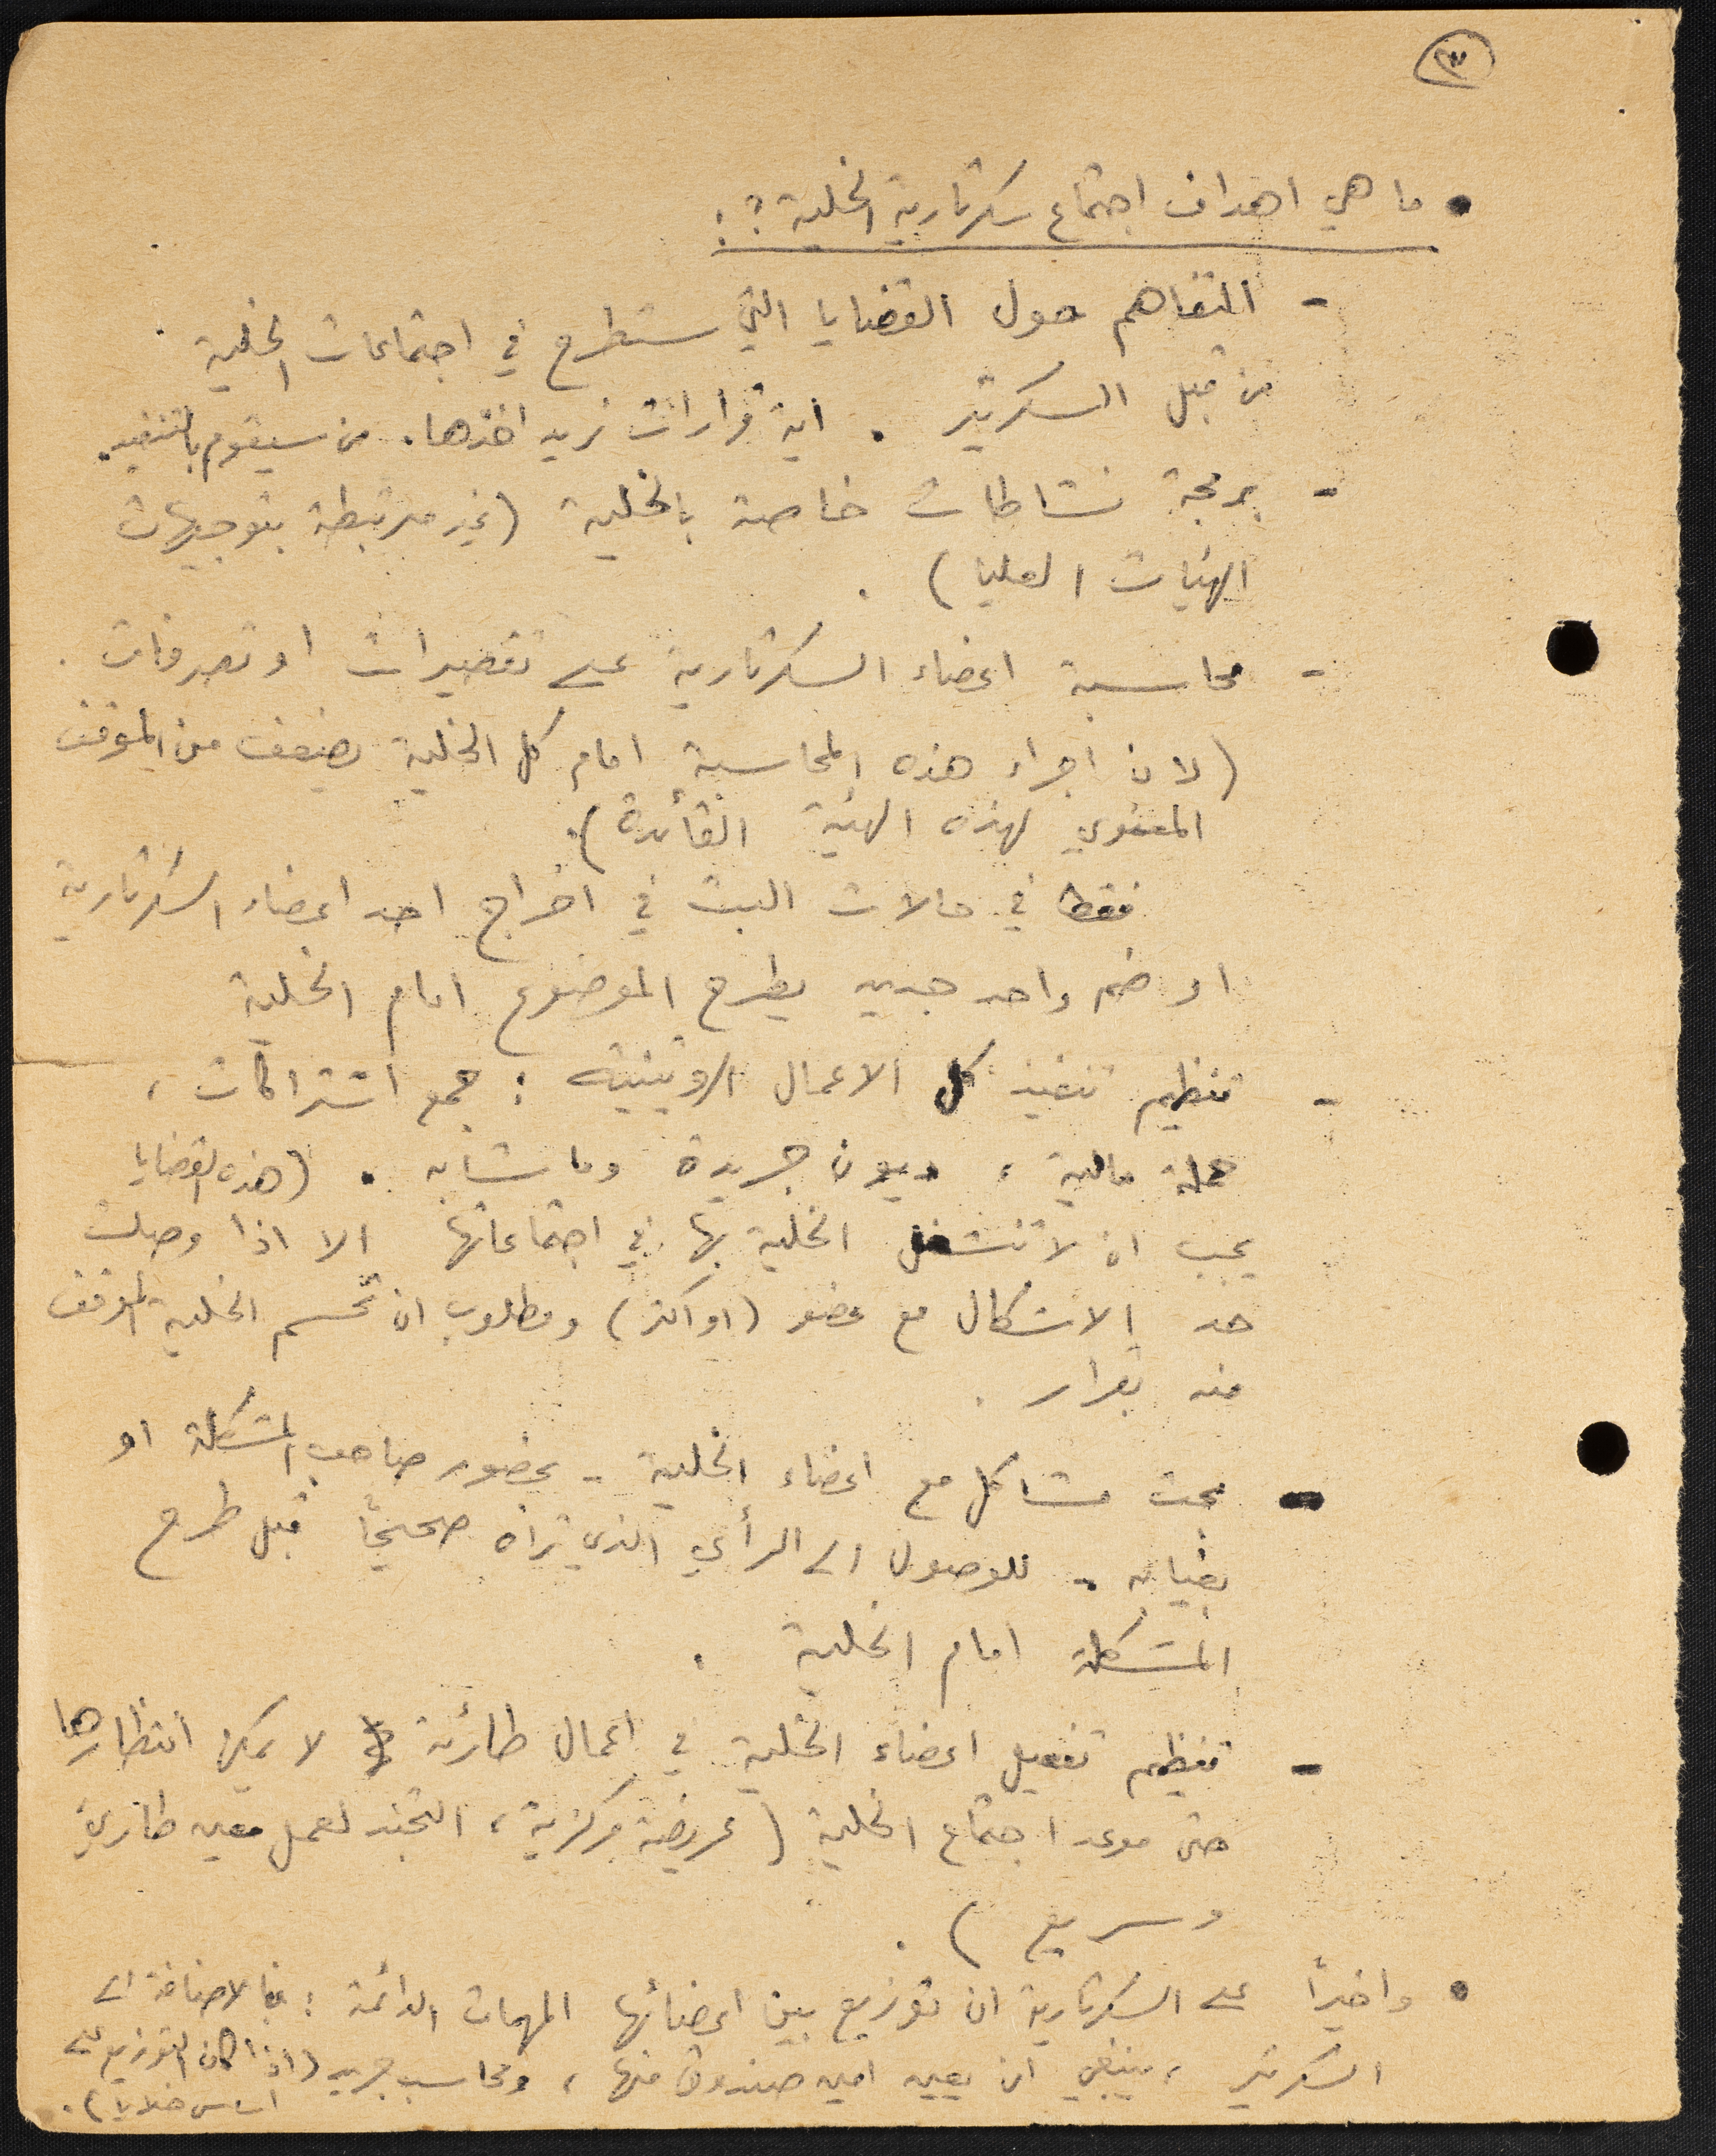 ٣
• ما هي اهداف اجتماع سكرتارية الخلية ؟ :
- التفاهم حول القضايا التي ستطرح في اجتماعات الخلية
من قبل السكرتير . اية قرارات نريد اخذها . من سيقوم بالتنفيذ .
- برمجة نشاطات خاصة بالخلية ( غير مرتبطة بتوجيهات
الهيئات العليا ) .
- محاسبة اعضاء السكرتارية على تقصيرات او تصرفات .
( لان اجراء هذه المحاسبة امام كل الخلية يضعف من الموقف
المعنوي لهذه الهيئة القائدة ) .
فقط في حالات البت في اخراج احد اعضاء السكرتارية
او ضم واحد جديد يطرح الموضوع امام الخلية
- تنظيم تنفيذ كل الاعمال الروتينية : جمع اشتراكات ،
حملة مالية ، ديون جريدة وما شابه . ( هذه القضايا
يجب ان لا تنشغل الخلية بها في اجتماعاتها الا اذا وصلت
حد الاشكال مع عضو ( او اكثر ) ومطلوب ان تحسم الخلية الموقف
منه بقرار .
- بحث مشاكل مع اعضاء الخلية - بحضور صاحب المشكلة او
بغيابه - للوصول الى الرأي الذي تراه صحيحاً قبل طرح
المشكلة امام الخلية .
- تنظيم تفعيل اعضاء الخلية في اعمال طارئة لا يمكن انتظارها
حتى موعد اجتماع الخلية ( عريضة مركزية ، التجند لعمل معين طارئ
وسريع ) .
• واخيراً على السكرتارية ان توزيع بين اعضائها المهمات الدائمة : فبالاضافة الى
السكرتير ، ينبغي ان يعين امين صندوق منها ، ومحاسب جريد ( اذا كان التوزيع على
اساس خلايا ) .